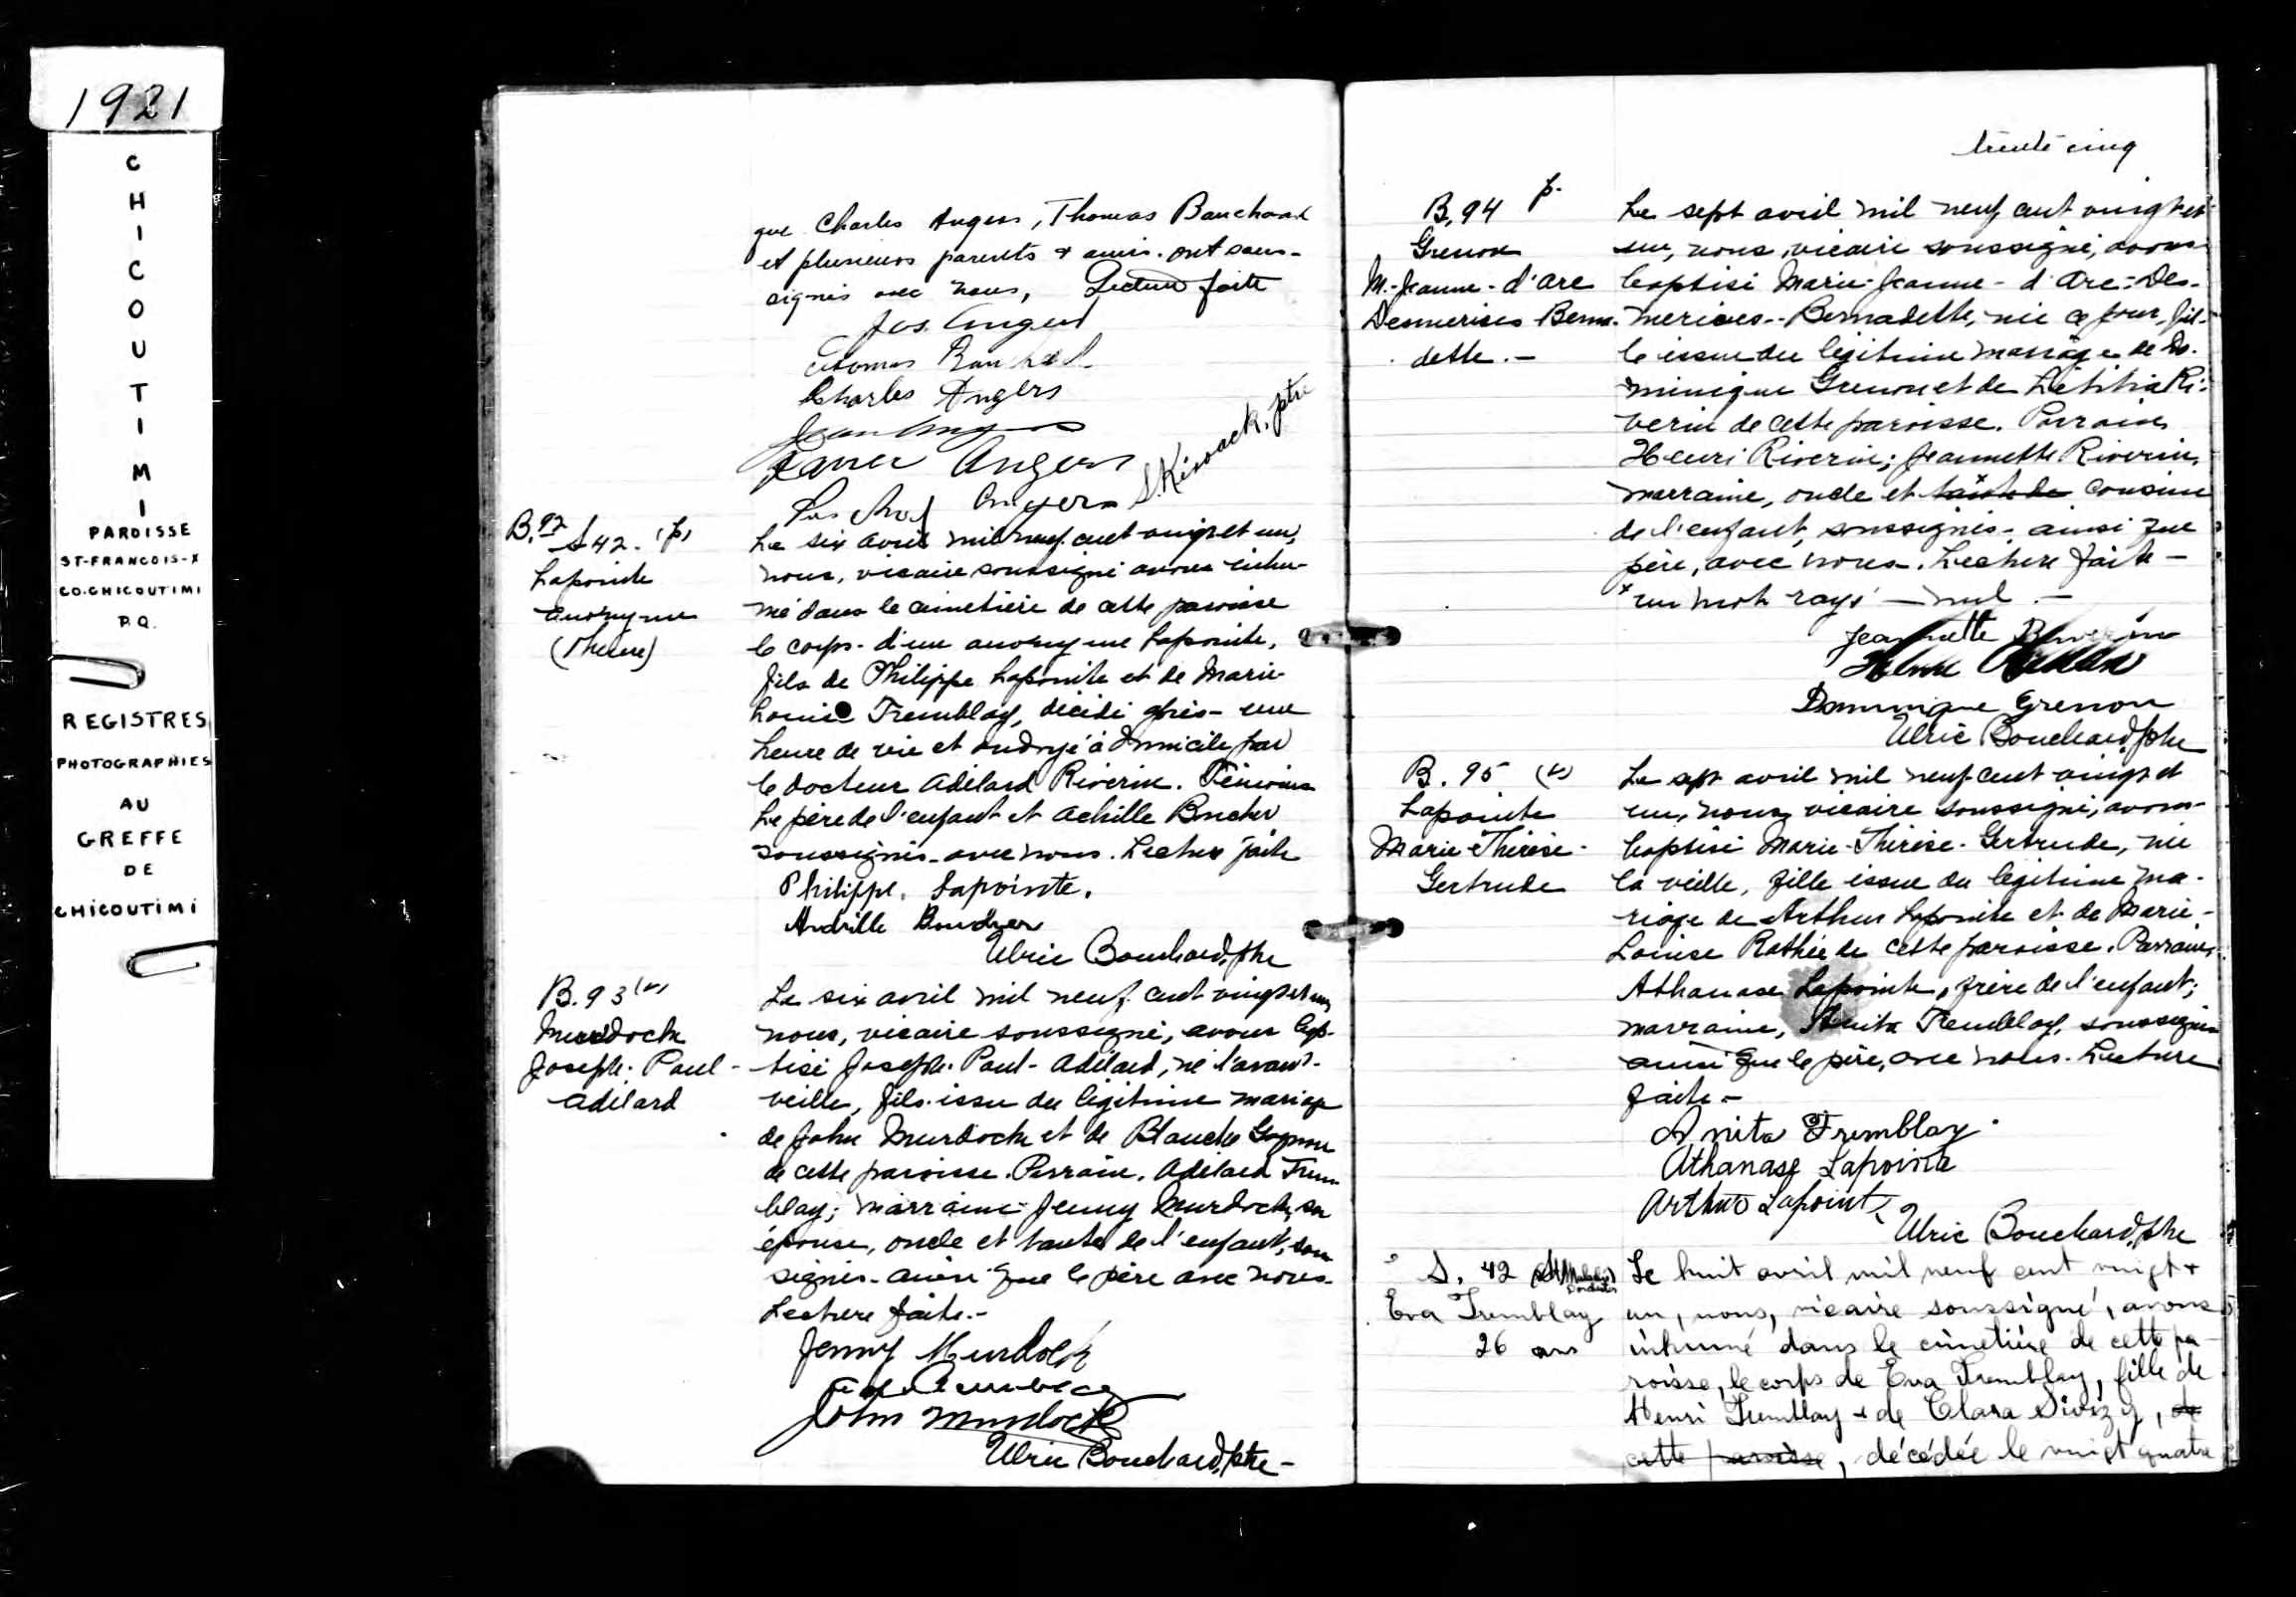 1921
CHICOUTIMI
PAROISSE
ST-FRANCOIS-X
CO. CHICOUTIMI
P.Q.
REGISTRES
PHOTOGRAPHIES
AU
GREFFE
DE
CHICOUTIMI
que Charles Angers, Thomas Bouchard
et plusieurs parents & amis. ont sous-
signés avec nous, Lecture faite
Jos. Angers
Thomas
Charles Angers
Angers
Angers
S. Kirouack, ptre
B. 92 S 42. (p)
Lapointe
anonyme
(1 heure)
Le six avril mil neuf cent vingt et un,
nous, vicaire soussigné avons inhu-
mé dans le cimetière de cette paroisse
le corps d'un anonyme Lapointe,
fils de Philippe Lapointe et de Marie-
Louise Tremblay, décédé après une
heure de vie et ondoyé à domicile par
le docteur Adélard Riverin. Témoins
Le père de l'enfant et Achille Boucher
soussignés avec nous. Lecture faite
Philippe. Lapointe.
Ulric Bouchard, ptre
B. 93 (v)
Murdock
Joseph-Paul-
Adélard
Le six avril mil neuf cent vingt et un,
nous, vicaire soussigné, avons bap-
tisé Joseph-Paul-Adélard, né l'avant-
veille, fils issu du légitime mariage
de John Murdock et de Blanche Gagnon
de cette paroisse. Parrain, Adélard Trem-
blay; marraine Jenny Murdock, son
épouse, oncle et tante de l'enfant, sous
signés ainsi que le père avec nous.
Lecture faite.-
Jenny Murdock
John Murdock
Ulric Bouchard, ptre-
trente cinq
B. 94 p.
Grenon
M.-Jeanne-d'Arc
Desmerises Berna-
dette.-
Le sept avril mil neuf cent vingt et
un, nous, vicaire soussigné, avons
baptisé Marie-Jeanne-d'Arc-Des-
merises-Bernadette, née ce jour, fil-
le issue du légitime mariage de Do-
minique Grenon et de Létitia Ri-
verin de cette paroisse. Parrain,
Henri Riverin; Jeannette Riverin,
marraine, oncle et cousine
de l'enfant, soussignés ainsi que
père, avec nous. Lecture faite -
x un mot rayé - nul.-
Jeannette Riverin
Dominique Grenon
Ulric Bouchard, ptre
B. 95 (v)
Lapointe
Marie-Thérèse-
Gertrude
Le sept avril mil neuf cent vingt et
un, nous, vicaire soussigné, avons
baptisé Marie-Thérèse-Gertrude, née
la veille, fille issue du légitime ma-
riage de Arthur Lapointe et de Marie-
Louise Rathé de cette paroisse. Parrain,
Athanase Lapointe, frère de l'enfant;
marraine, Anita Tremblay, soussignés
ainsi que le père, avec nous. Lecture
faite -
Anita Tremblay
Athanase Lapointe
Arthur Lapointe
Ulric Bouchard, ptre
S. 42
Eva Tremblay
26 ans
Le huit avril mil neuf cent vingt &
un, nous, vicaire soussigné, avons
inhumé dans le cimetière de cette pa-
roisse, le corps de Eva Tremblay, fille de
Henri Tremblay & de Clara , de
cette paroisse, décédée le vingt quatre